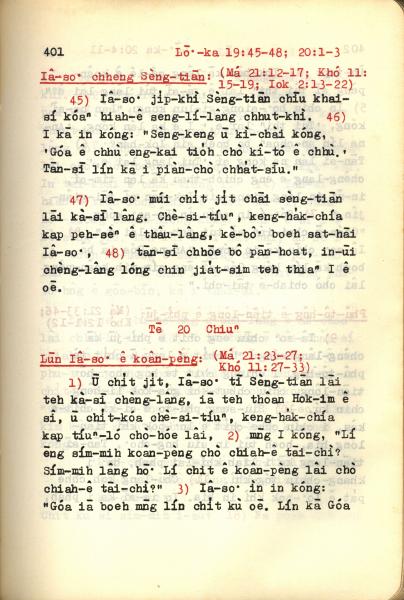 401 Lō͘-ka 19:45-48; 20:1-3
Iâ-so͘ chheng Sèng-tiān: (Má 21:12-17; Khó 11:
15-19; Iok 2:13-22)
45) Iâ-so͘ ji̍p-khì Sèng-tiān chīu khai-
sí kóaⁿ hiah-ê seng-lí-lâng chhut-khì. 46)
I kā in kóng: "Sèng-keng ū kì-chài kóng,
'Góa ê chhù eng-kai tio̍h chò kî-tó ê chhù.'
Tān-sī lín kā i piàn-chò chha̍t-sīu."
47) Iâ-so͘ múi chi̍t ji̍t chāi sèng-tiān
lāi kà-sī lâng. Chè-si-tíuⁿ, keng-ha̍k-chíá
kap peh-sèⁿ ê thâu-lâng, kè-bô͘ boeh sat-hāi
Iâ-so͘, 48) tān-sī chhōe bô pān-hoat, in-ūi
chèng-lâng lóng chin jia̍t-sim teh thiaⁿ I ê
oē.
Tē 20 Chiuⁿ
Lūn Iâ-so͘ ê koân-pèng: (Má 21:23-27;
Khó 11:27-33)
1) Ū chi̍t ji̍t, Iâ-so͘ tī Sèng-tiān lāi
teh kà-sī chèng-lâng, iā teh thoân Hok-im ê
sî, ū chi̍t-kóa chè-si-tíuⁿ, keng-ha̍k-chíá
kap tíuⁿ-ló chò-hóe lâi, 2) mn̄g I kóng, "Lí
ēng sím-mih koân-pèng chò chiah-ê tāi-chì?
Sím-mih lâng hō͘ Lí chit ê koân-pèng lâi chò
chiah-ê tāi-chì?" 3) Iâ-so͘ ìn in kóng:
"Góa iā boeh mn̄g lín chi̍t kù oē. Lín kā Góa